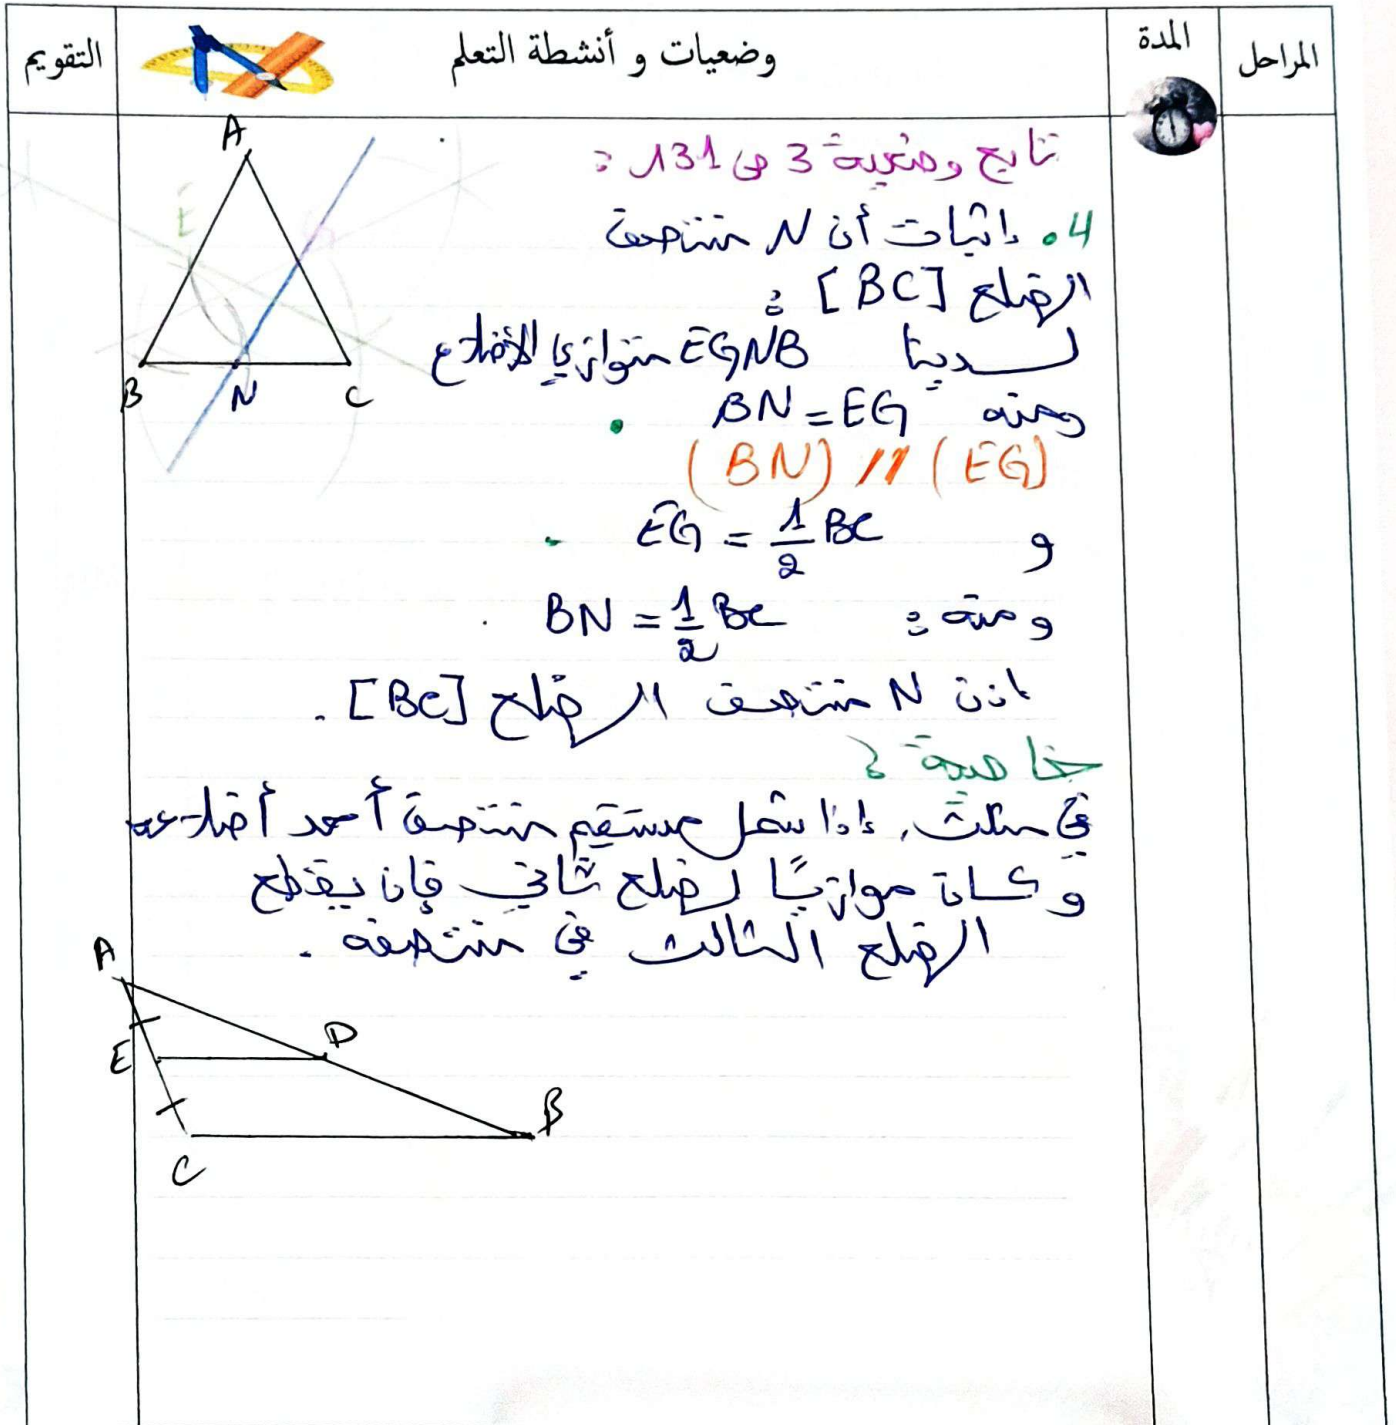 المراحل
المدة
وضعيات و أنشطة التعلم
التقويم
تابع وضعية 3 ص 131 :
4. إثبات أن N منتصف
الضلع [BC] :
لدينا EGNB متوازي الأضلاع
ومنه BN = EG
(BN) // (EG)
و EG = 1/2 BC
ومنه : BN = 1/2 BC
إذن N منتصف الضلع [BC] .
خاصية :
في مثلث, إذا شمل مستقيم منتصف أحد أضلاعه
و كان موازيًا لضلع ثاني فإن يقطع
الضلع الثالث في منتصفه .
A
E
G
B
N
C
A
E
D
B
C